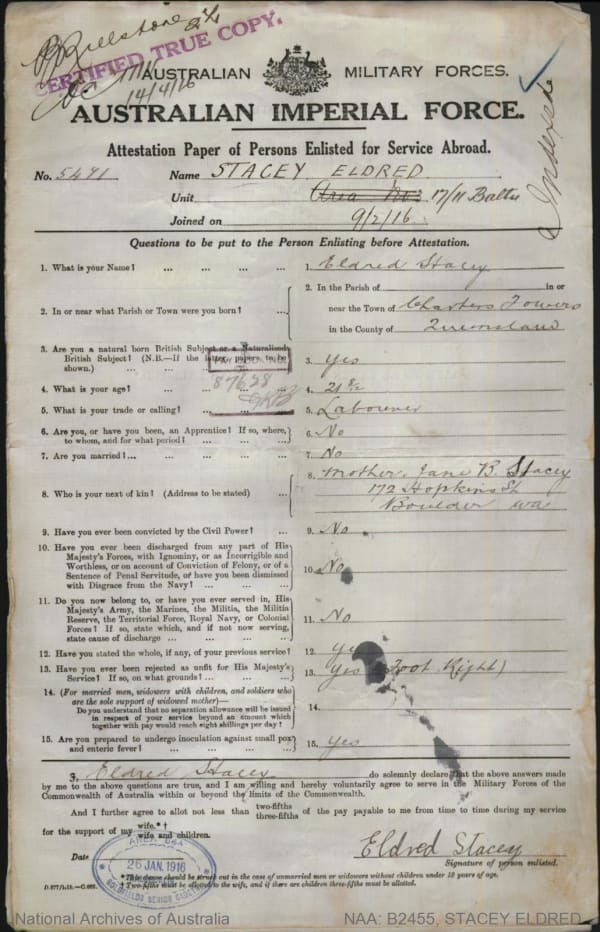 CERTIFIED TRUE COPY.
14/4/16
AUSTRALIAN MILITARY FORCES.
AUSTRALIAN IMPERIAL FORCE.
Attestation Paper of Persons Enlisted for Service Abroad.
No. 5471 Name STACEY ELDRED
Unit Area No: 17/11 Battn
Joined on 9/2/16.
Questions to be put to the Person Enlisting before Attestation.
1. What is your Name? ... ... ... 1. Eldred Stacey
2. In or near what Parish or Town were you born? ... 2. In the Parish of in or
near the Town of Charters Towers
in the County of Queensland
3. Are you a natural born British Subject or a Naturalized
British Subject? (N.B.—If the latter, papers to be
shown.) ... ... 3. Yes
4. What is your age? ... 4. 21 8/12
87658
5. What is your trade or calling? ... 5. Labourer
6. Are you, or have you been, an Apprentice? If so, where,
to whom, and for what period? ... ... ... 6. No
7. Are you married? ... ... ... ... 7. No
8. Who is your next of kin? (Address to be stated) ... 8. Mother, Jane B. Stacey
172 Hopkins St
Boulder WA
9. Have you ever been convicted by the Civil Power? ... 9. No
10. Have you ever been discharged from any part of His
Majesty's Forces, with Ignominy, or as Incorrigible and
Worthless, or on account of Conviction of Felony, or of a
Sentence of Penal Servitude, or have you been dismissed
with Disgrace from the Navy? ... ... ... 10. No
11. Do you now belong to, or have you ever served in, His
Majesty's Army, the Marines, the Militia, the Militia
Reserve, the Territorial Force, Royal Navy, or Colonial
Forces? If so, state which, and if not now serving,
state cause of discharge ... ... ... 11. No
12. Have you stated the whole, if any, of your previous service? 12. yes
13. Have you ever been rejected as unfit for His Majesty's
Service? If so, on what grounds? ... ... ... 13. Yes (Foot Right)
14. (For married men, widowers with children, and soldiers who
are the sole support of widowed mother)—
Do you understand that no separation allowance will be issued
in respect of your service beyond an amount which
together with pay would reach eight shillings per day? 14.
15. Are you prepared to undergo inoculation against small pox
and enteric fever? ... ... ... ... 15. Yes
I, Eldred Stacey do solemnly declare that the above answers made
by me to the above questions are true, and I am willing and hereby voluntarily agree to serve in the Military Forces of the
Commonwealth of Australia within or beyond the limits of the Commonwealth.
And I further agree to allot not less than two-fifths three-fifths of the pay payable to me from time to time during my service
for the support of my wife.*† wife and children.
Date Eldred Stacey
AREA 84A
26 JAN. 1916
GOLDFIELDS SENIOR CADETS
Signature of person enlisted.
*This clause should be struck out in the case of unmarried men or widowers without children under 18 years of age.
† Two-fifths must be allotted to the wife, and if there are children three-fifths must be allotted.
National Archives of Australia NAA: B2455, STACEY ELDRED